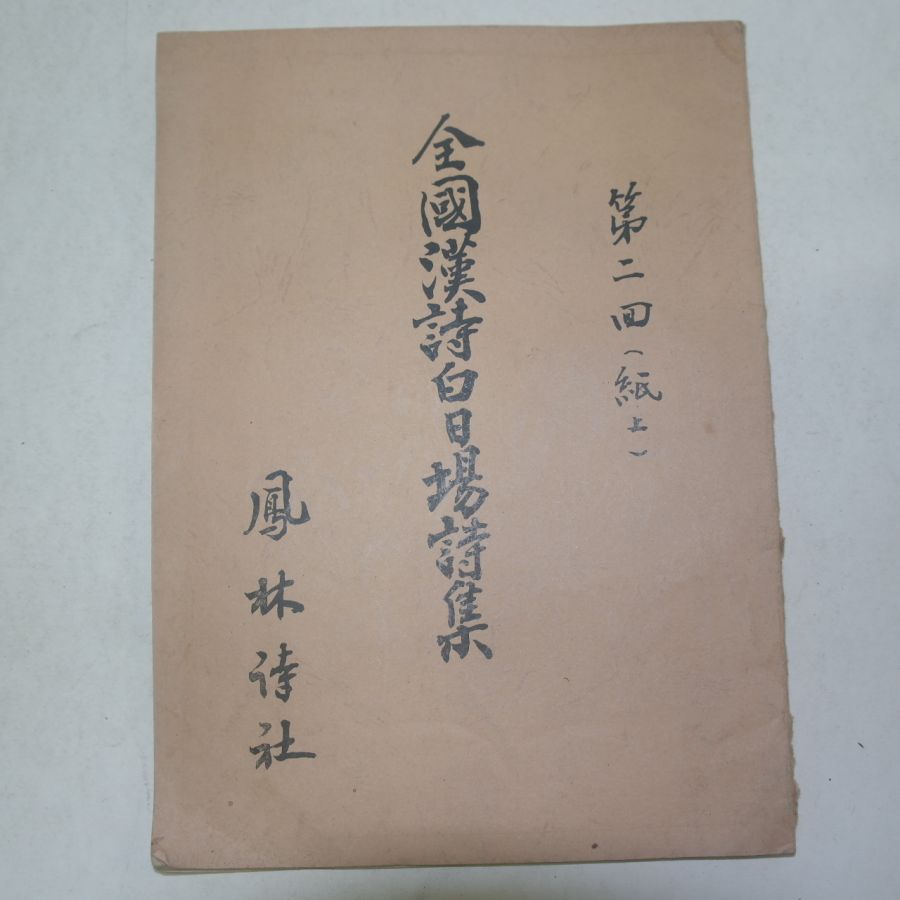 第二回(紙上)
全國漢詩白日場詩集
鳳林詩社